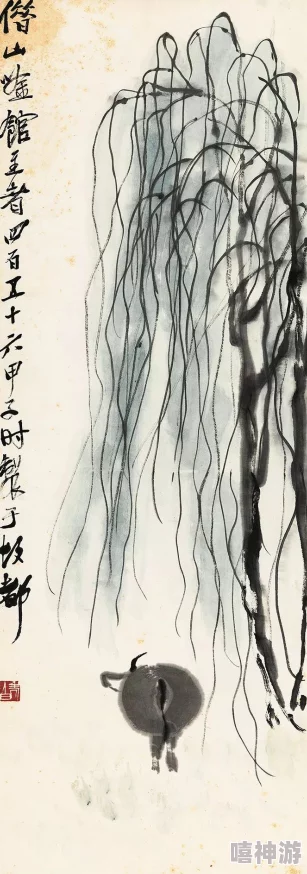 借山唫館主者四百五十六甲子時製于故都
嘻神游